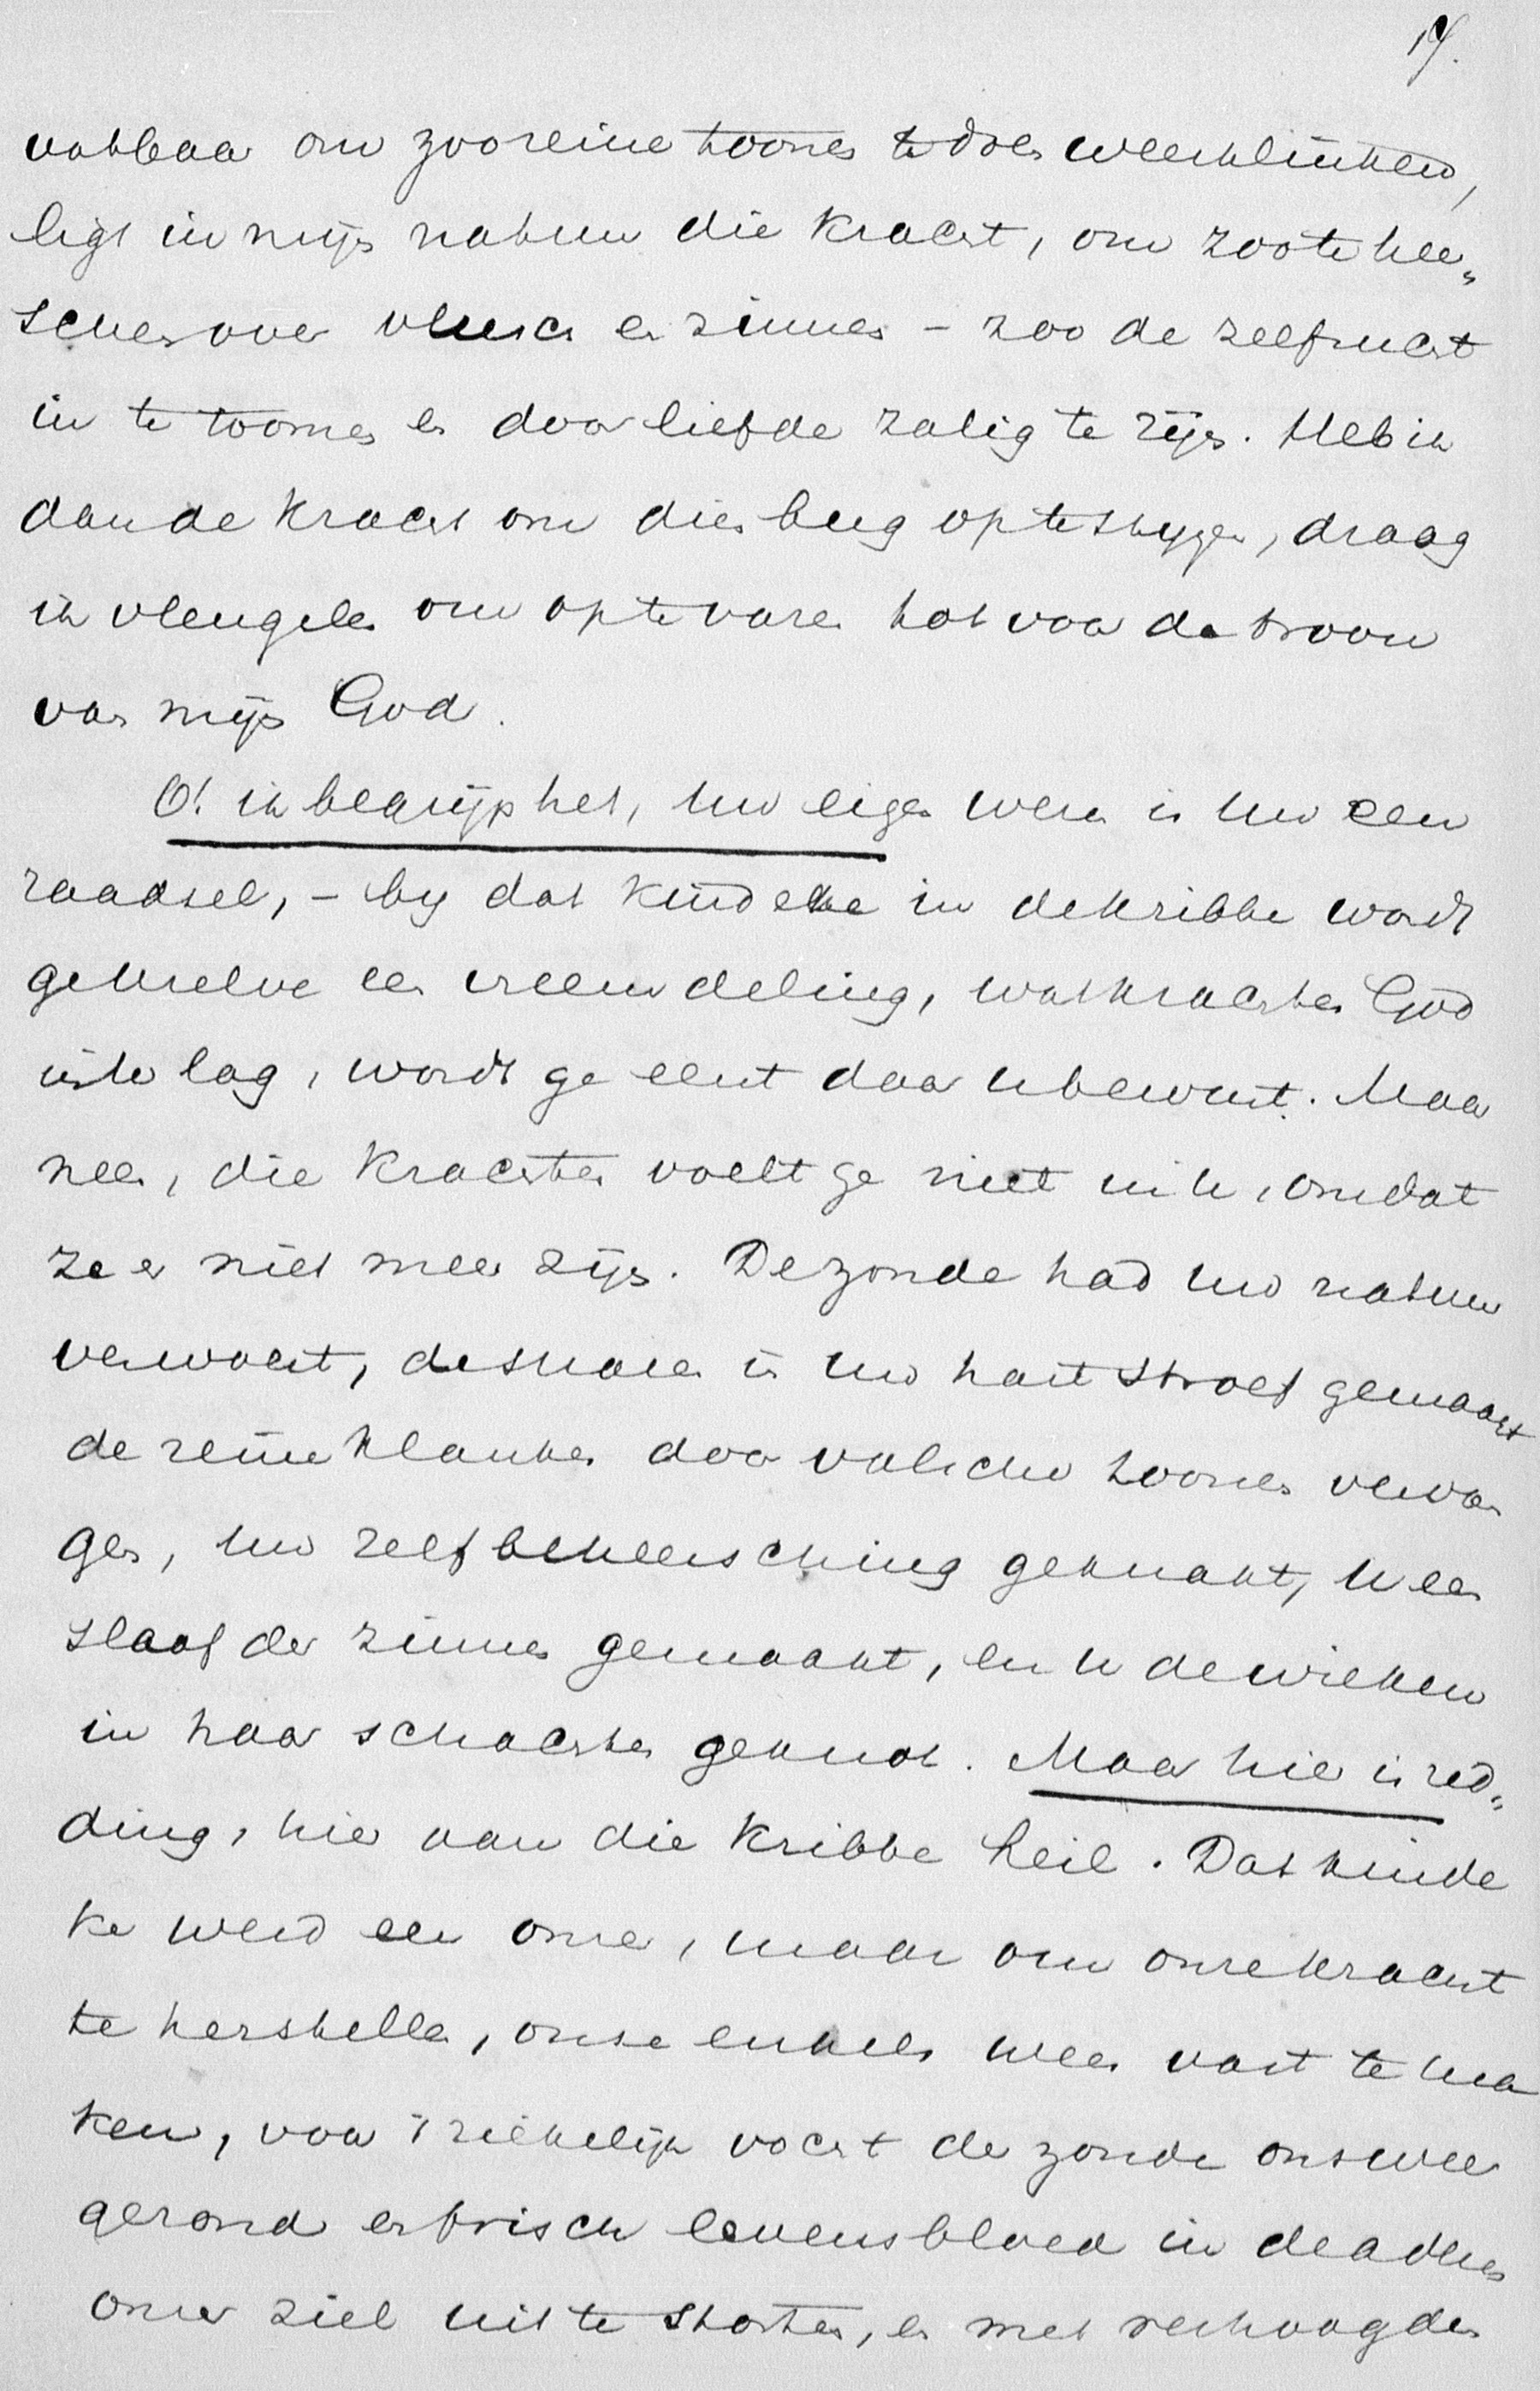 19.
vatbaar om zoo reine toonen te doen weerklinken,
ligt in mijn natuur die kracht, om zoo te heer„
schen over vleesch en zinnen – zoo de zelfzucht
in te toomen en door liefde zalig te zijn. Heb ik
dan de kracht om dien berg op te stijgen, draag
ik vleugelen om op te varen tot voor de troon
van mijn God.
O! ik begrijp het, Uw eigen wezen is Uw een
raadsel, – by dat kindeke in de kribbe wordt
ge Uzelve een vreemdeling, wat krachten God
in U lag, wordt ge eerst daar U bewust. Maar
neen, die krachten voelt ge niet in U, omdat
ze er niet meer zijn. De zonde had Uw natuur
verwoest, de snaren in Uw hart stroef gemaakt
de reine klanken door valsche toonen vervan
gen, Uw zelfbeheersching geknakt, U een
slaaf der zinnen gemaakt, en U de wieken
in haar schachten geknot. Maar hier is red„
ding, hier aan die kribbe heil. Dat kinde
ke werd een onzer, maar om onze kracht
te herstellen, onze enkels weer vast te ma
ken, voor 't ziekelijk vocht der zonde ons weer
gezond en frisch levensbloed in de aderen
onzer ziel uit te storten, en met verhoogden